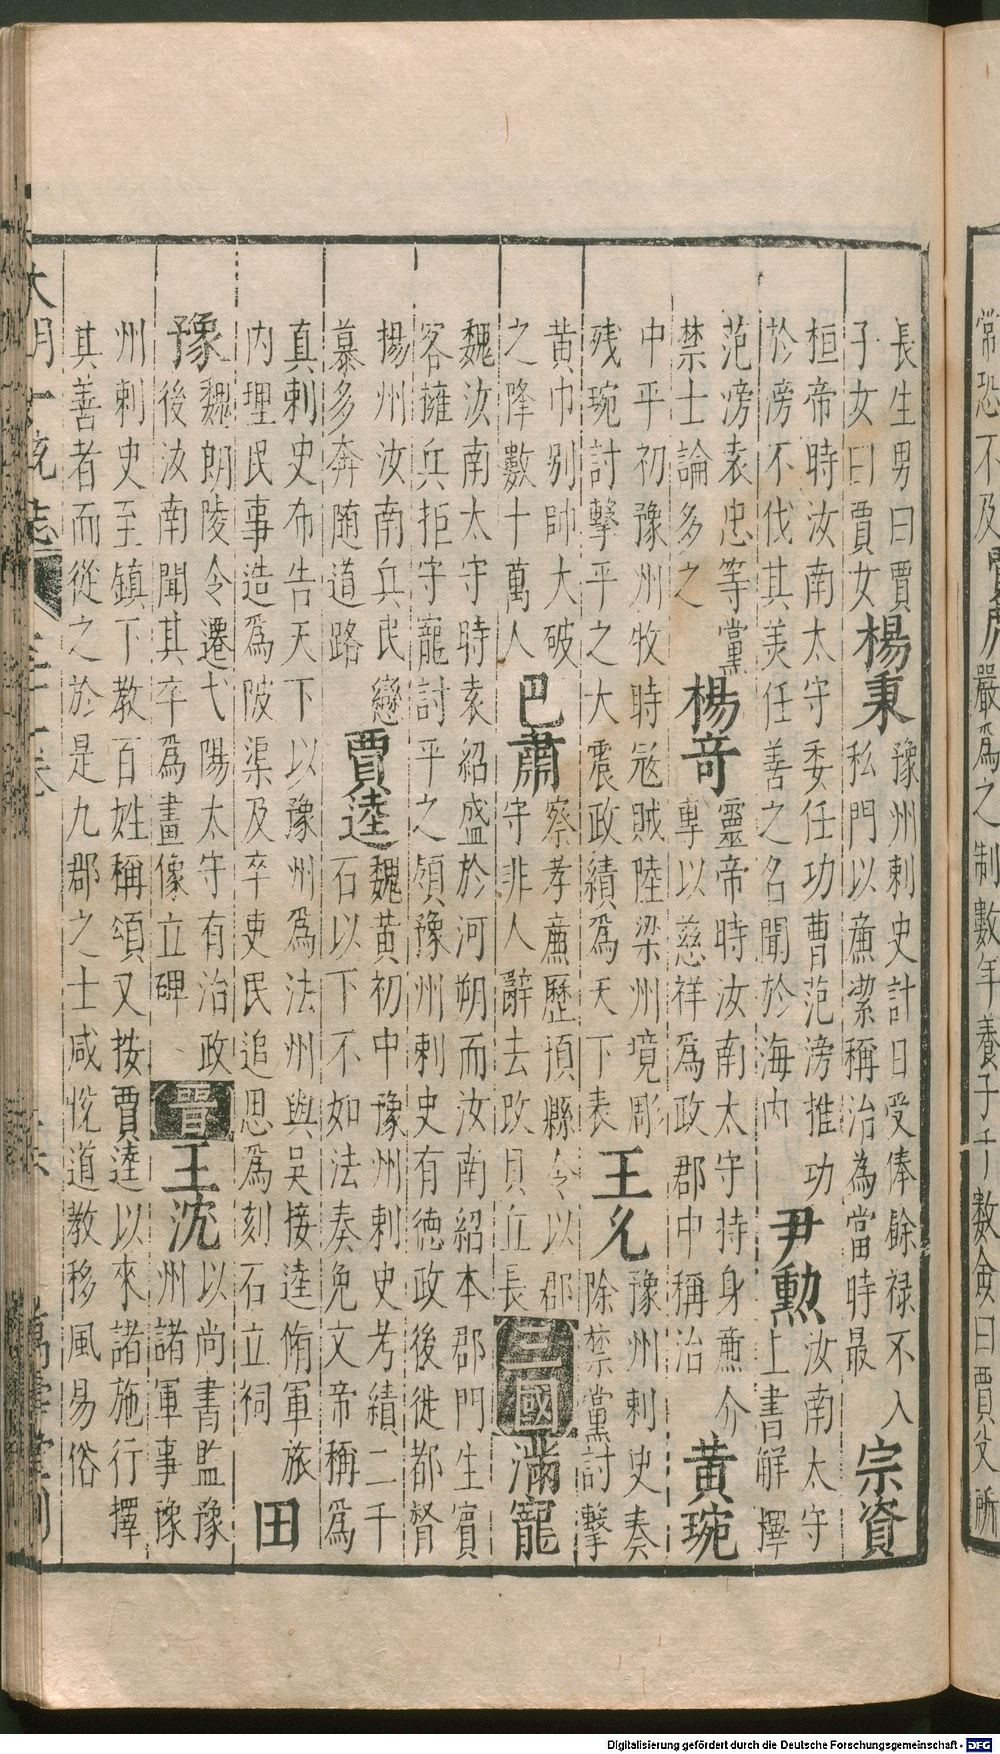 常恐不及賈彪嚴爲之制數年養子千數僉曰賈父所
長生男曰賈
子女曰賈女
楊秉
豫州刺史計日受俸餘禄不入
私門以㢘潔稱治為當時最
宗資
桓帝時汝南太守委任功曹范滂推功
於滂不伐其美任善之名聞於海内
尹勲
汝南太守
上書解擇
范滂袁忠等黨
禁士論多之
楊竒
靈帝時汝南太守持身㢘介
專以慈祥爲政郡中稱治
黄琬
中平初豫州牧時冦賊陸梁州境彫
残琬討擊平之大震政績爲天下表
王允
豫州刺史奏
除禁黨討擊
黄巾别帥大破
之降數十萬人
巴肅
察孝㢘歷湏縣令以郡
守非人辭去改貝丘長
三國
滿寵
魏汝南太守時袁紹盛於河朔而汝南紹本郡門生賔
客擁兵拒守寵討平之領豫州刺史有德政後徙都督
揚州汝南兵民戀
慕多奔随道路
賈逵
魏黄初中豫州刺史考績二千
石以下不如法奏免文帝稱爲
真刺史布告天下以豫州爲法州與吴接逵脩軍旅
内理民事造爲陂渠及卒吏民追思爲刻石立祠
田
豫
魏朗陵令遷弋陽太守有治政
後汝南聞其卒爲畫像立碑
晋
王沈
以尚書監豫
州諸軍事豫
州刺史至鎮下教百姓稱頌又按賈逵以來諸施行擇
其善者而從之於是九郡之士咸悦道教移風易俗
大明一統志
三十一卷
萬壽堂刊
Digitalisierung gefördert durch die Deutsche Forschungsgemeinschaft - DFG